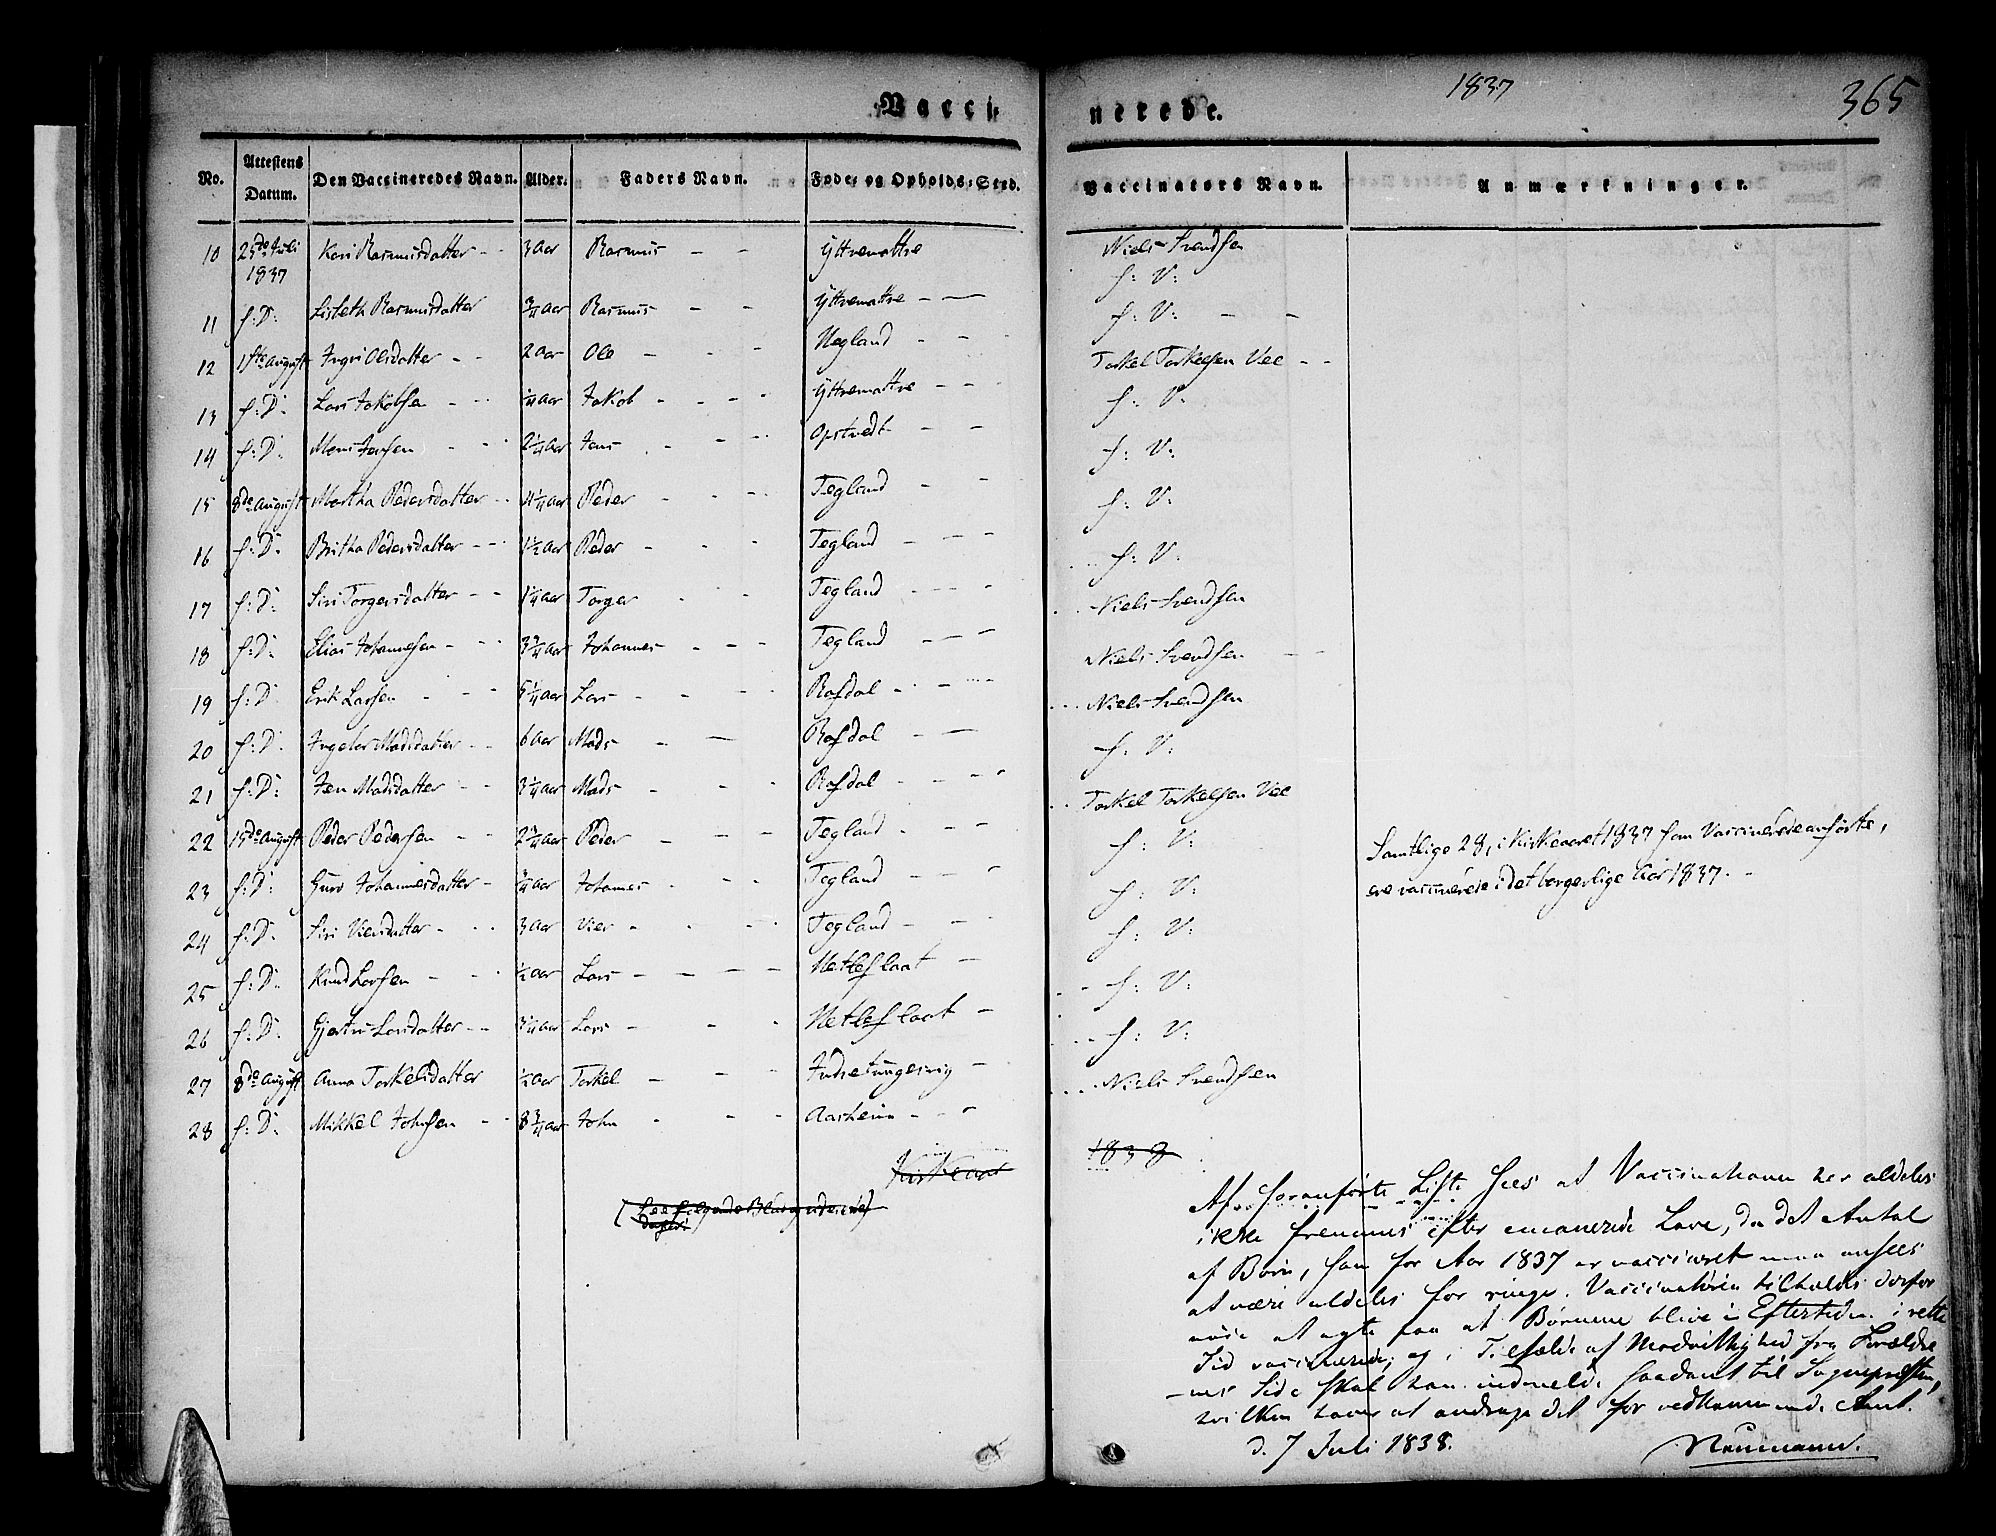 1837
365
Vacci-
nerede.
No. Attestens Datum. Den Vaccineredes Navn. Alder. Faders Navn. Føde- og Opholds-Sted. Vaccinators Navn. Anmærkninger.
10 25de Juli 1837 Kari Rasmusdatter - - 3 Aar Rasmus - - Yttremattre Niels Svendsen
f: V:
11 f: D: Lisbeth Rasmusdatter 3/4 Aar Rasmus - - Yttremattre - - f: V: - -
12 1ste August Ingri Olsdatter - - 2 Aar Ole - - - Hegland - - Torkel Torkelsen Vee - -
13 f: D: Lars Jakobsen - - 1/4 Aar Jakob - - - - Yttremattre - - - f: V:
14 f: D: Mons Jensen - - 2 1/4 Aar Jens - - - Opstvedt - - f: V:
15 8de August Martha Pedersdatter - - 4 1/4 Aar Peder - - - Tegland - - f: V:
16 f: D: Britha Pedersdatter - - 1 1/2 Aar Peder - - - Tegland - - - f: V:
17 f: D: Siri Torgersdatter - - 1 1/4 Aar Torger - - Tegland - - - Niels Svendsen
18 f: D: Elias Johannesen - - - 3 3/4 Aar Johannes - - - Tegland - - - Niels Svendsen - -
19 f: D: Erik Larsen - - - 5 1/4 Aar Lars - - - - Rafdal - - - Niels Svendsen
20 f: D: Ingebor Madsdatter - - 6 Aar Mads - - Rafdal - - f: V:
21 f: D: Jen Madsdatter - - 3 1/4 Aar Mads - - - Rafdal - - - - Torkel Torkelsen Vee
22 15de August Peder Pedersen - - 2 3/4 Aar Peder - - - Tegland - - - f: V:
Samtlige 28, i Kirkeaaret 1837 som Vaccinerede anførte,
23 f: D: Guro Johannesdatter - 3/4 Aar Johannes - - - Tegland - - - f: V:
ere vaccinerede i det borgerlige Aar 1837. -
24 f: D: Siri Viersdatter - - - 3 Aar Vier - - - - Tegland - - - f: V:
25 f: D: Knud Larsen - - - 1/2 Aar Lars - - - - Netleflaat - - f: V:
26 f: D: Gjertru Larsdatter - - 3 1/4 Aar Lars - - - Netleflaat - f: V:
27 8de August Anna Torkelsdatter 1/2 Aar Torkel - - - Indretungesvig - Niels Svendsen
28 f: D: Mikkel Johnsen - - 8 3/4 Aar John - - - Aarheim - - -
Kirkeaar
1838
Af foranførte Liste sees at Vaccinationen her aldeles
ikke fremmes efter emanerede Love, da det Antal
af Børn, som for Aar 1837 er vaccineret maa ansees
at være aldeles for ringe. Vaccinatøren tilholdes derfor
nøie at agte paa at Børnene blive i Eftertiden i rette
Tid vaccinerede; og i Tilfælde af Modvillighed fra Forældre
-nes Side skal han indmelde saadant til Sognepræsten,
hvilken haver at andrage det for vedkommende Amt.
d. 7 Juli 1838.
Neumann.